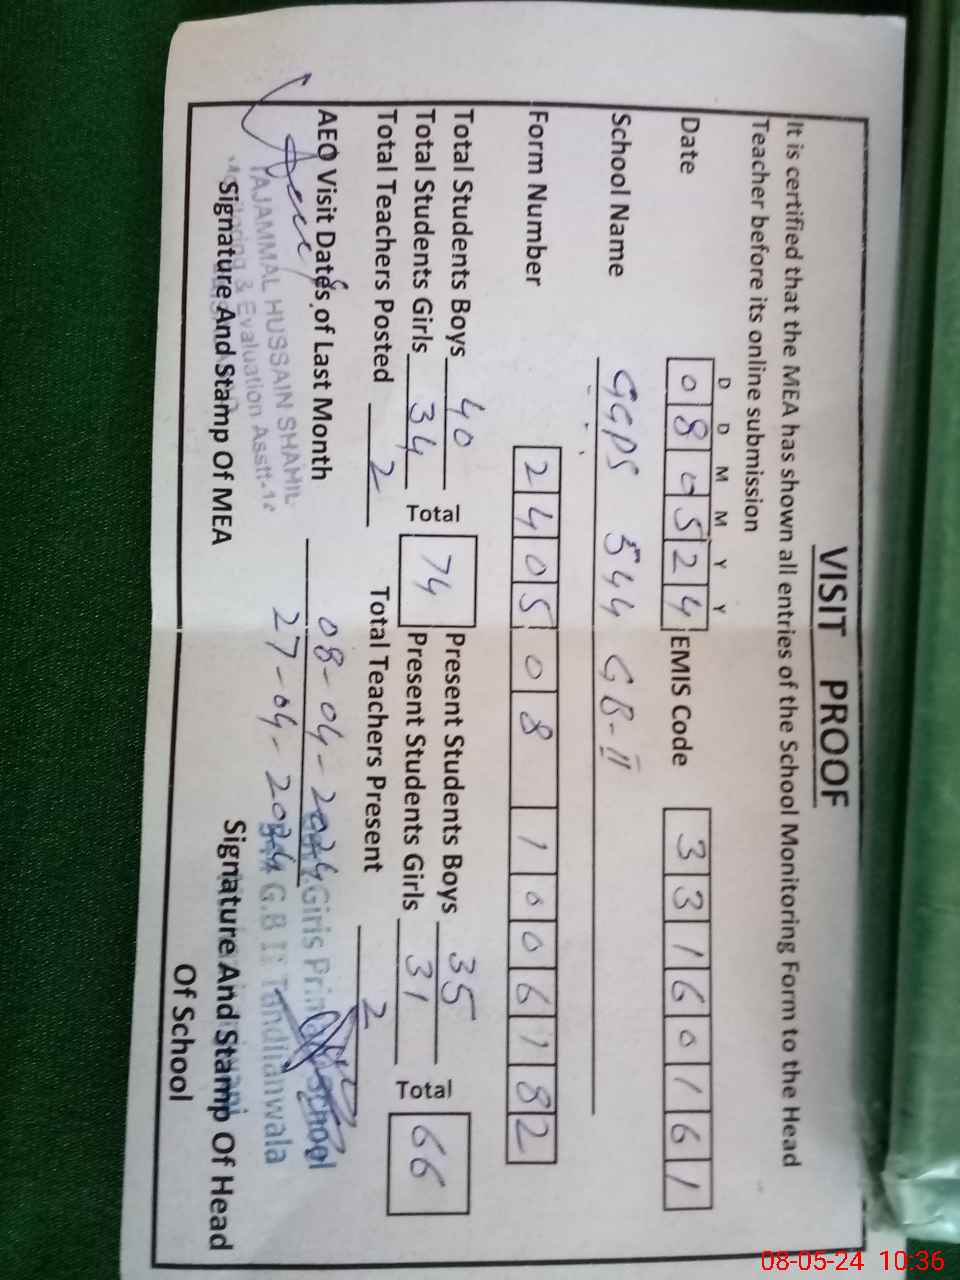 VISIT PROOF
It is certified that the MEA has shown all entries of the School Monitoring Form to the Head
Teacher before its online submission
D D M M Y Y
Date 0 8 0 5 2 4 EMIS Code 3 3 1 6 0 1 6 1
School Name GGPS 544 GB-II
Form Number 2 4 0 5 0 8 1 0 0 6 1 8 2
Total Students Boys 40 Present Students Boys 35
Total 74 Total 66
Total Students Girls 34 Present Students Girls 31
Total Teachers Posted 2 Total Teachers Present 2
AEO Visit Dates of Last Month 08-04-2024
27-04-2024
TAJAMMAL HUSSAIN SHAHIL
Monitoring & Evaluation Asstt-
Girls Primary School
G.B II Tandlianwala
Signature And Stamp Of MEA Signature And Stamp Of Head
Of School
08-05-24 10:36